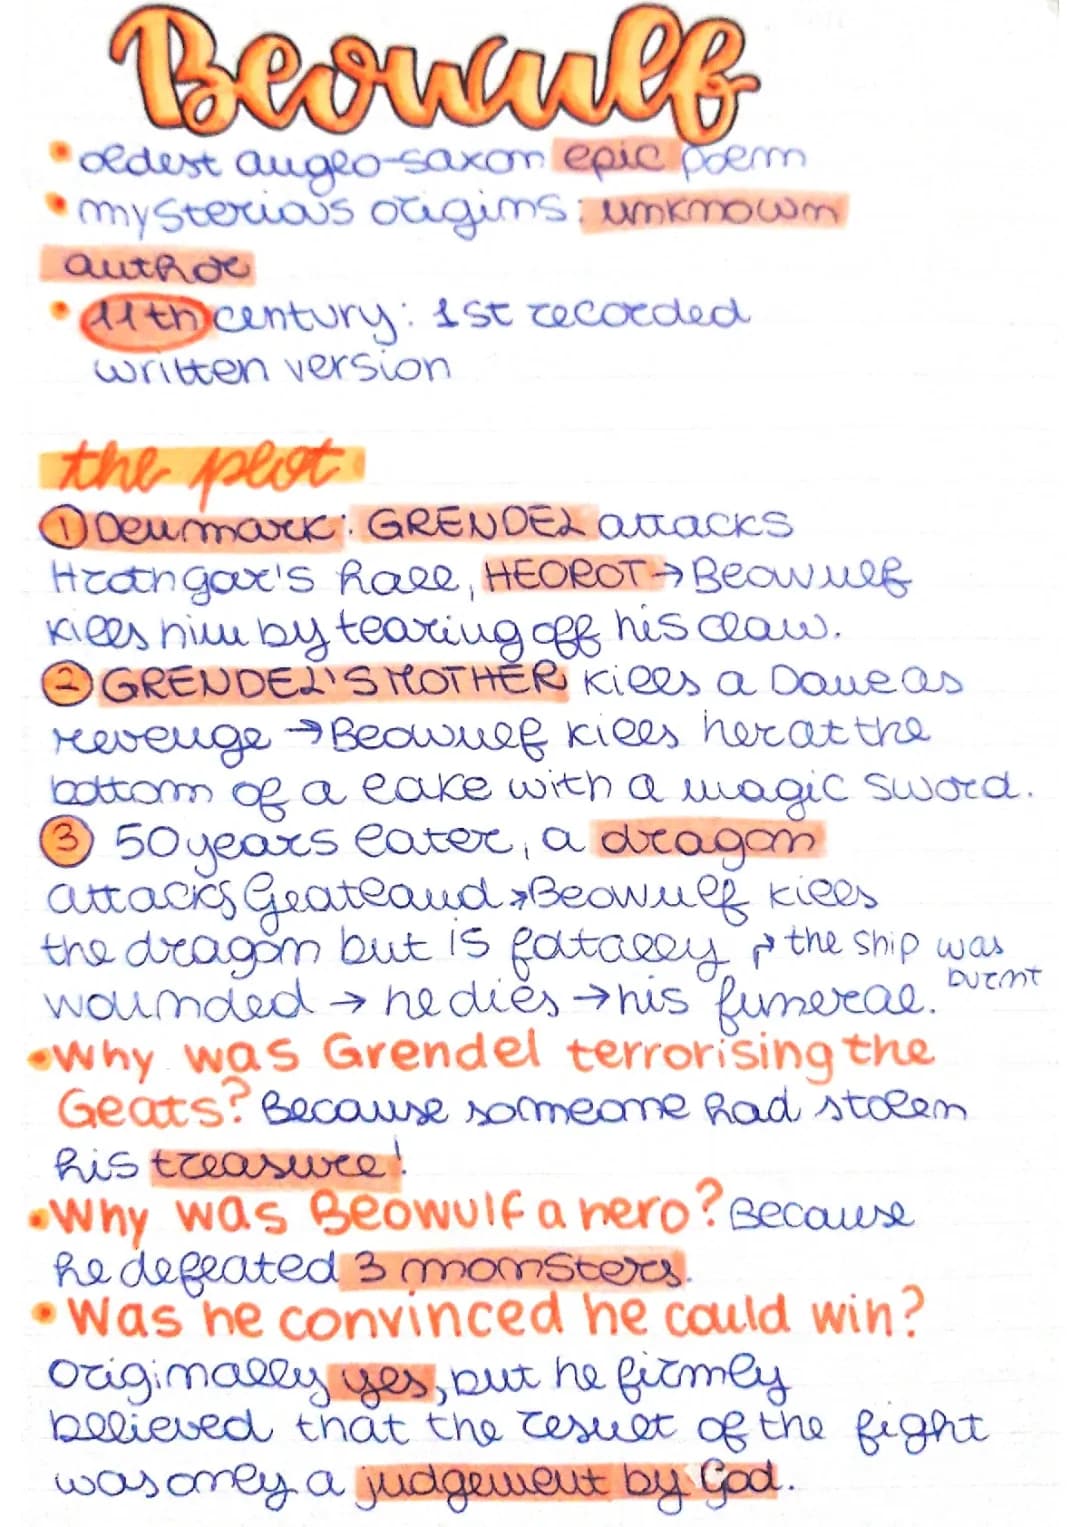 Beowulf
• oldest anglo-saxon epic poem
• mysterious origins: unknown
author
• 11th century: 1st recorded
written version
the plot
① Denmark: GRENDEL attacks
Hrothgar's hall, HEOROT → Beowulf
kills him by tearing off his claw.
② GRENDEL'S MOTHER kills a Dane as
revenge → Beowulf kills her at the
bottom of a lake with a magic sword.
③ 50 years later, a dragon
attacks Geatland → Beowulf kills
the dragon but is fatally ↱ the ship was burnt
wounded → he dies → his funeral.
• Why was Grendel terrorising the
Geats? Because someone had stolen
his treasure!
• Why was Beowulf a hero? Because
he defeated 3 monsters.
• Was he convinced he could win?
Originally yes, but he firmly
believed that the result of the fight
was only a judgement by God.